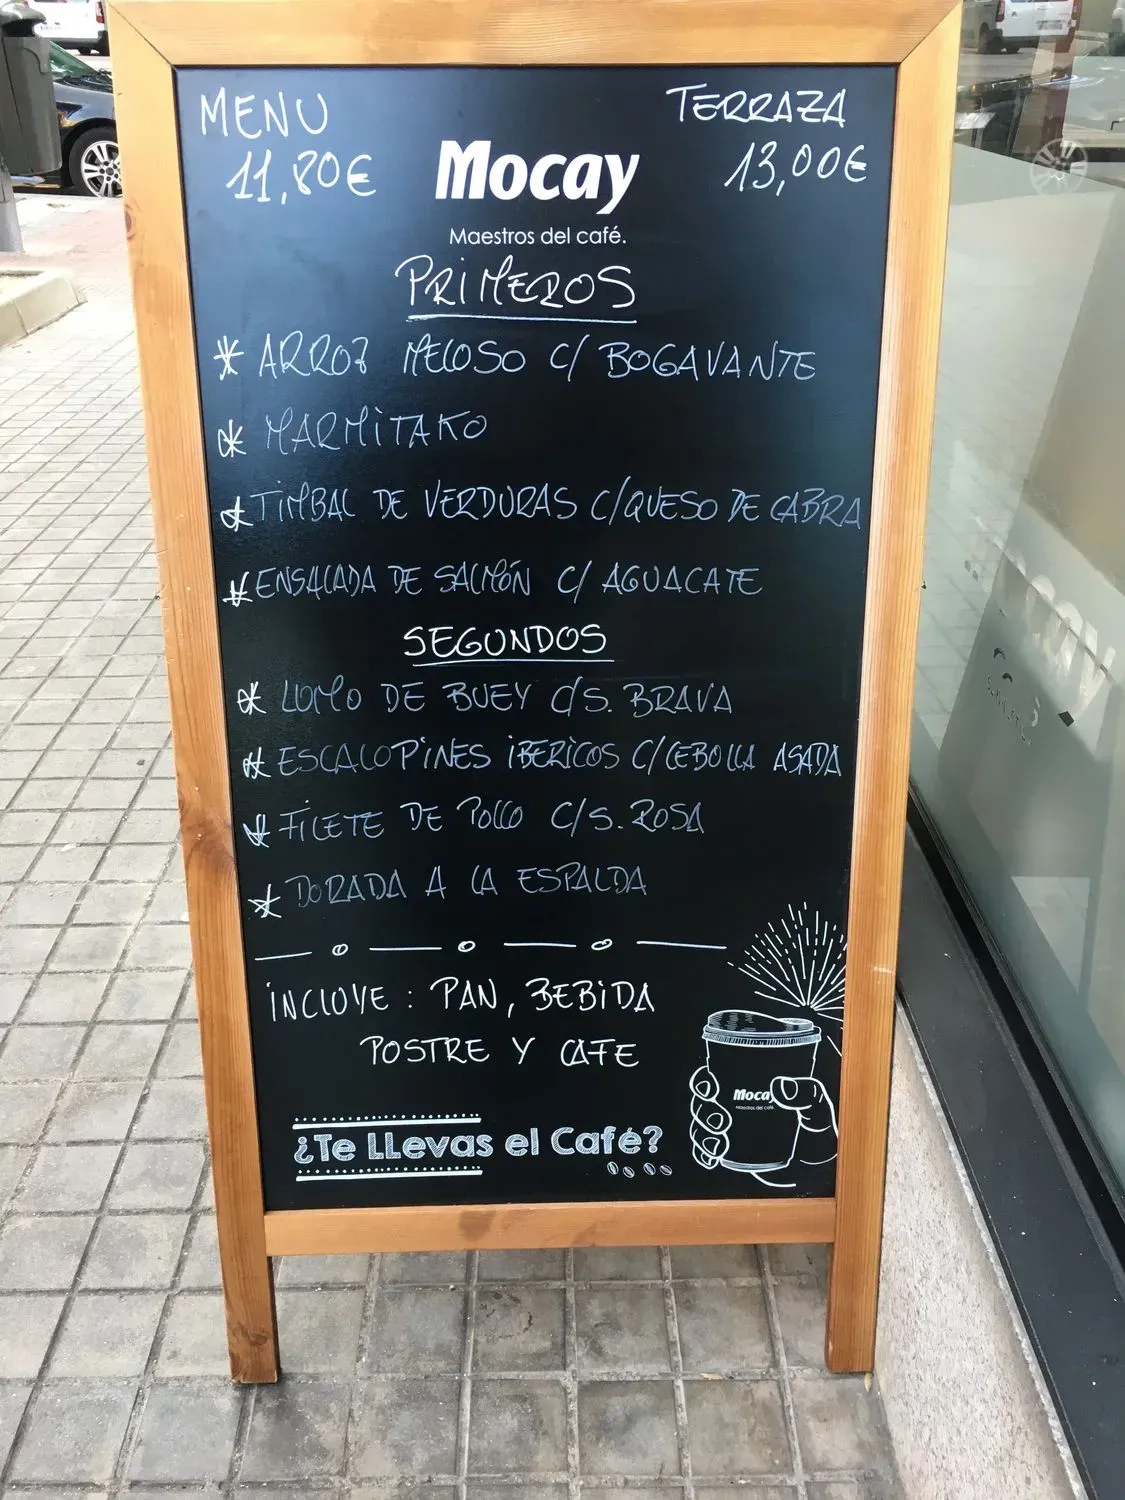 MENU
TERRAZA
11,80€
13,00€
Mocay
Maestros del café.
PRIMEROS
* ARROZ MELOSO C/ BOGAVANTE
* MARMITAKO
* TIMBAL DE VERDURAS C/QUESO DE CABRA
* ENSALADA DE SALMÓN C/ AGUACATE
SEGUNDOS
* LOMO DE BUEY C/S. BRAVA
* ESCALOPINES IBERICOS C/CEBOLLA ASADA
* FILETE DE POLLO C/S. ROSA
* DORADA A LA ESPALDA
INCLUYE : PAN, BEBIDA
POSTRE Y CAFE
Mocay
Maestros del café.
¿Te LLevas el Café?